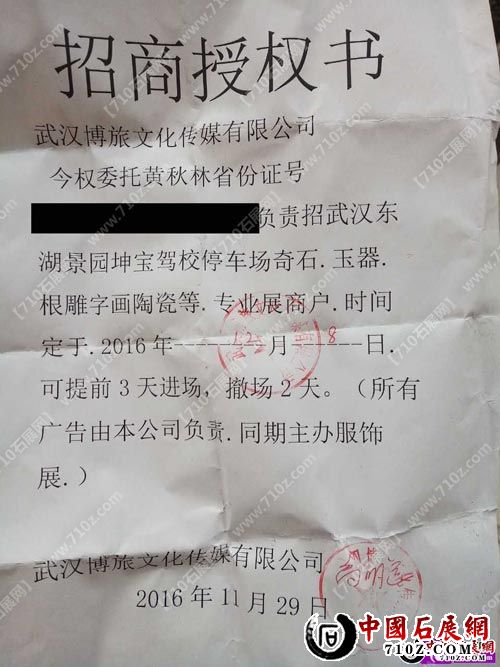 招商授权书
武汉博旅文化传媒有限公司
今权委托黄秋林省份证号
负责招武汉东
湖景园坤宝驾校停车场奇石.玉器.
根雕字画陶瓷等.专业展商户.时间
定于.2016年-------12-月------8-日.
可提前3天进场,撤场2天。（所有
广告由本公司负责.同期主办服饰
展.）
武汉博旅文化传媒有限公司
2016年11月29日
中國石展網
710Z.COM
【710石展网】
www.710z.com